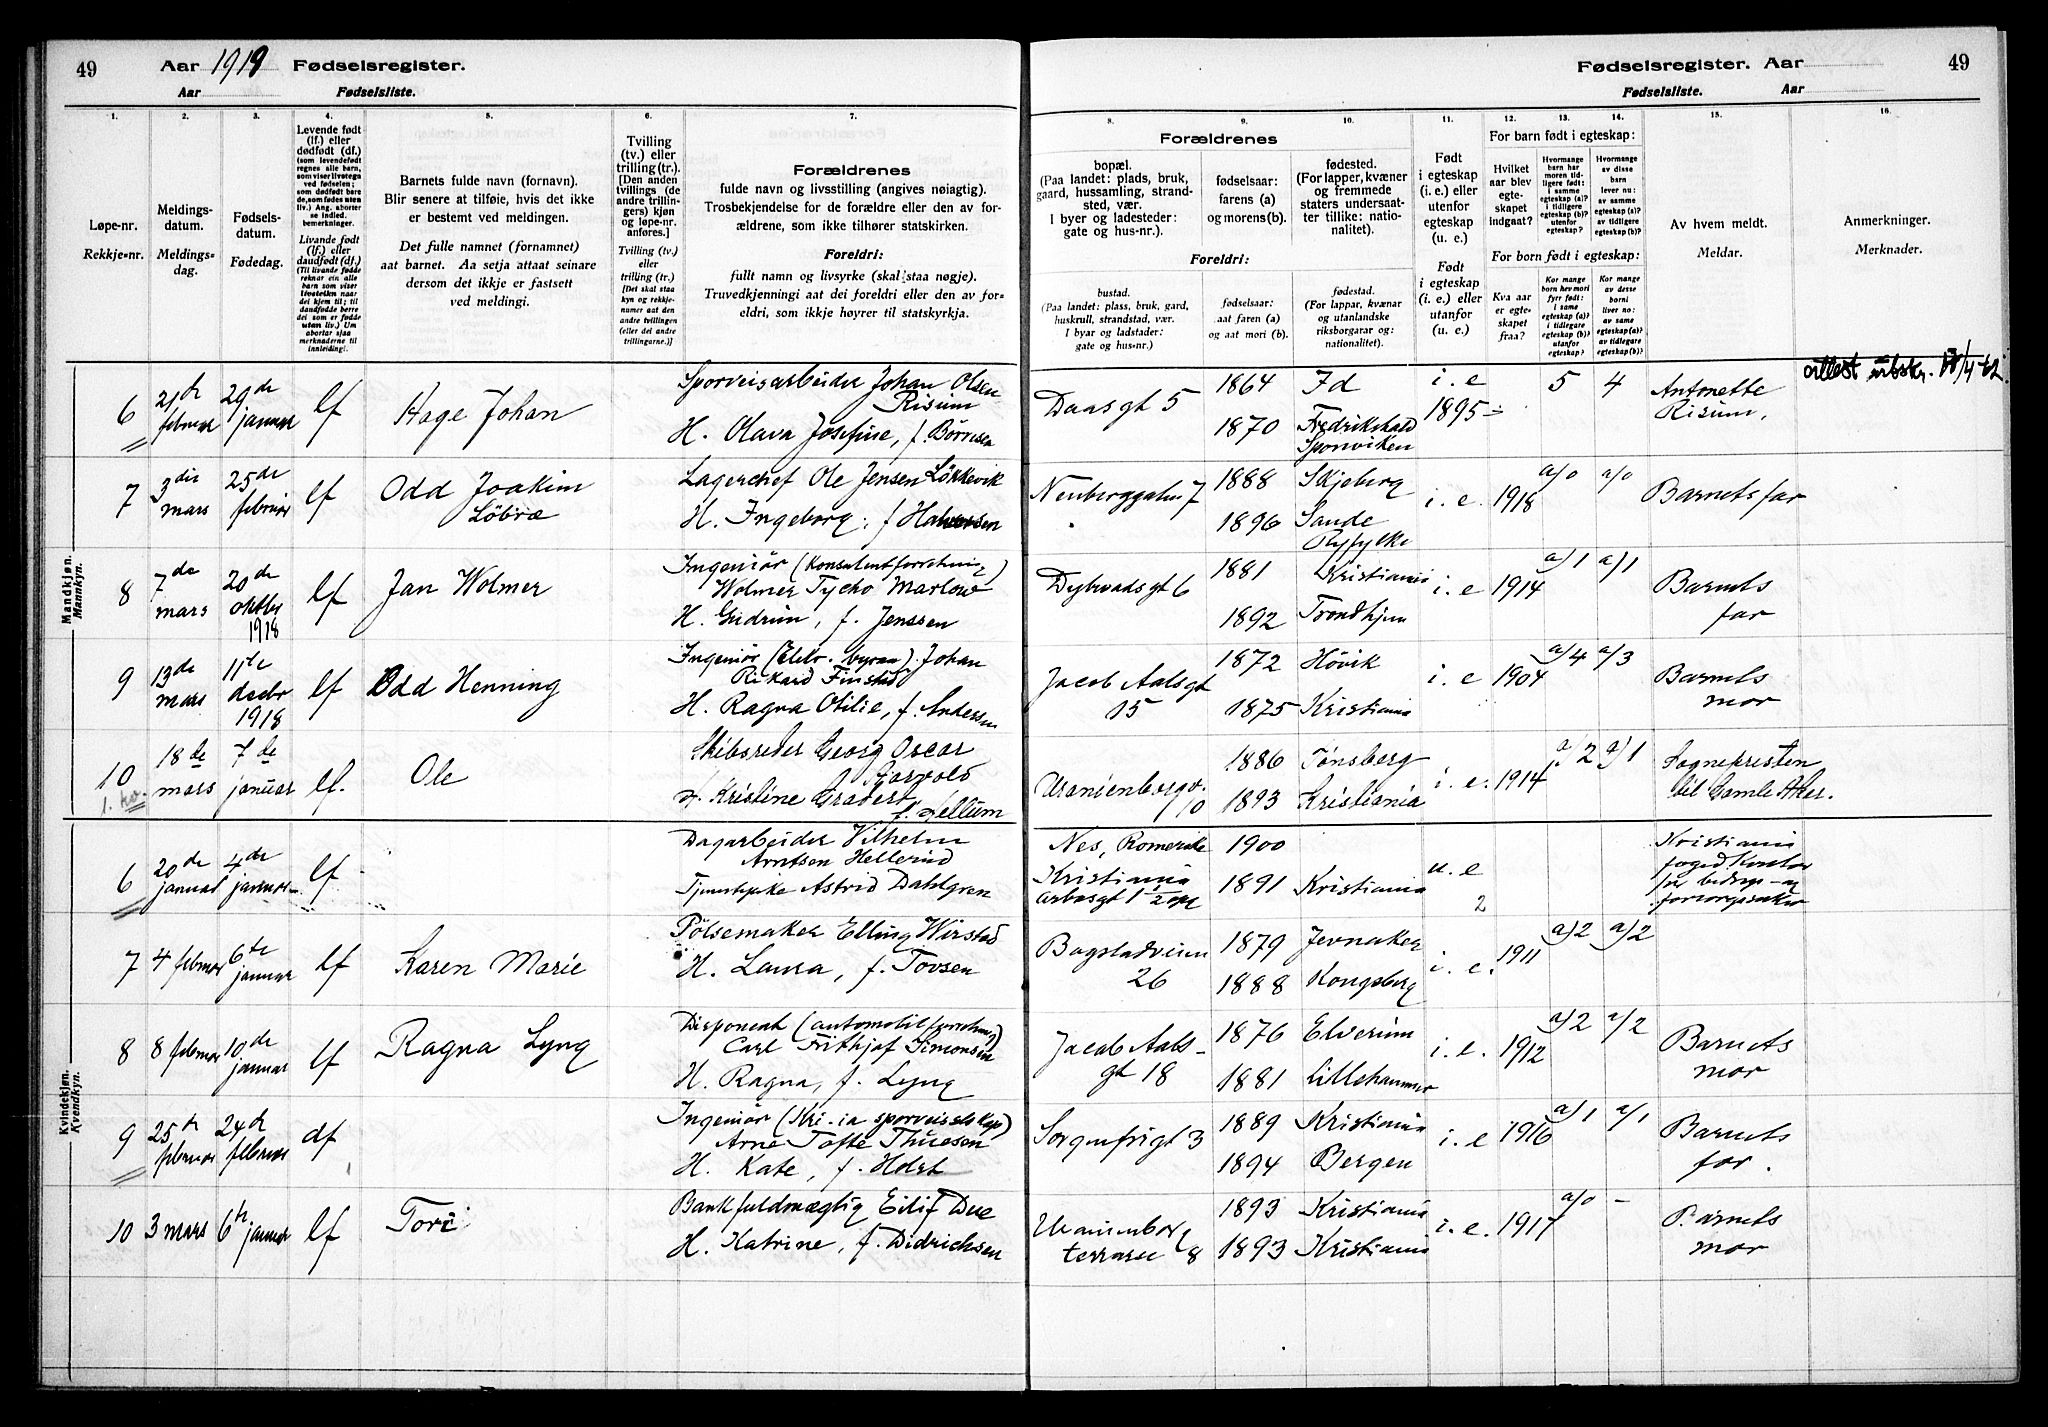 49 Aar 1919 Fødselsregister.
Aar Fødselsliste.
Fødselsregister. Aar 49
Fødselsliste. Aar
1. 2. 3. 4. 5. 6. 7. 8. 9. 10. 11. 12. 13. 14. 15. 16.
Løpe-nr.
Rekkje-nr.
Meldings-
datum.
Meldings-
dag.
Fødsels-
datum.
Fødedag.
Levende født
(lf.) eller
dødfødt (df.)
Livande født
(lf.) eller
daudfødt (df.)
Barnets fulde navn (fornavn).
Blir senere at tilføie, hvis det ikke
er bestemt ved meldingen.
Det fulle namnet (fornamnet)
aat barnet. Aa setja attaat seinare
dersom det ikkje er fastsett
ved meldingi.
Tvilling
(tv.) eller
trilling (tr.)
[Den anden
tvillings (de
andre trillin-
gers) kjøn
og løpe-nr.
anføres.]
Tvilling (tv.)
eller
trilling (tr.)
[Det skal staa
kyn og rekkje-
numer aat den
andre tvillingen
(eller dei andre
trillingarne.)]
Forældrenes
fulde navn og livsstilling (angives nøiagtig).
Trosbekjendelse for de forældre eller den av for-
ældrene, som ikke tilhører statskirken.
Foreldri:
fullt namn og livsyrke (skal staa nøgje).
Truvedkjenningi aat dei foreldri eller den av for-
eldri, som ikkje høyrer til statskyrkja.
Forældrenes
bopæl.
(Paa landet: plads, bruk,
gaard, hussamling, strand-
sted, vær.
I byer og ladesteder:
gate og hus-nr.).
fødselsaar:
farens (a)
og morens(b).
fødested.
(For lapper, kvæner
og fremmede
staters undersaat-
ter tillike: natio-
nalitet).
Foreldri:
bustad.
(Paa landet: plass, bruk, gard,
huskrull, strandstad, vær.
I byar og ladstader:
gate og hus-nr.)
fødselsaar:
aat faren (a)
og aat mori (b).
fødestad.
(For lappar, kvænar
og utanlandske
riksborgarar og:
nationalitet).
Født
i egteskap
(i. e.) eller
utenfor
egteskap
(u. e.)
Født
i egteskap
(i. e.) eller
utanfor
(u. e.).
For barn født i egteskap:
Hvilket
aar blev
egte-
skapet
indgaat?
Hvormange
barn har
moren tid-
ligere født:
i samme
egteskap (a)?
i tidligere
egteskap (b)?
utenfor
egteskap?
Hvormange
av disse
barn
lever nu:
av samme
egteskap (a)?
av tidligere
egteskap(b)?
For born født i egteskap:
Kva aar
er egte-
skapet
fraa?
Kor mange
born hev mori
fyrr født:
i same
egteskap (a)?
i tidlegare
egteskap (b)?
utanfor
egteskap?
Kor mange
av desse
borni
liver no:
av same
egteskap(a)?
av tidlegare
egteskap(b)?
Av hvem meldt.
Meldar.
Anmerkninger.
Merknader.
Mandkjøn.
Mannkyn.
6 februar 29de januar lf Hage Johan
Sporveisarbeider Johan Olsen
Risum
H. Olava Josefine, f. Børresen
Daasgt 5 1864 Id i. e 5 4 Antonette
1895 Risum.
1870 Fredrikshald
Sponviken
7 3die mars 25de februar lf Odd Joakim
Løbræ
Lagerchef Ole Jensen Løkkevik
H. Ingeborg, f Halvorsen
Neuberggaten 7 1888 Skjeberg i. e. 1918 a/0 a/0 Barnets far
1896 Sande
Ryfylke
8 7de mars 20de oktbr 1918 lf Jan Wolmer
Ingeniør (Konsulentforretning)
Wolmer Tycho Marlow
H. Gudrun, f. Jenssen
Dybwadsgt 6 1881 Kristiania i. e 1914 a/1 a/1 Barnets
far
1892 Trondhjem
9 13de mars 11te decbr 1918 lf Odd Henning
Ingeniør (Elektr. byraa) Johan
Rikard Finstad
H. Ragna Otilie, f. Andersen
Jacob Aalsgt
15 1872 Høvik i. e 1904 a/4 a/3 Barnets
mor
1875 Kristiania
10 18de mars 7de januar lf. Ole
Skibsreder Georg Oscar
H. Kristine
Uranienborgv.
10 1886 Tønsberg i. e. 1914 a/2 a/1 Sognepresten
til Gamle Aker.
1893 Kristiania
Kvindekjøn.
Kvendkyn.
6 20de januar 4de januar lf
Dagarbeider Vilhelm
Arntsen Hellerud
Tjenestepike Astrid Dahlgren
Nes, Romerike 1900
Kristiania 1891 Kristiania u. e
2
Kristiania
fogedkontor
for bidrags- og
forsorgssaker
7 4 februar 6te januar lf Karen Marie
Pølsemaker Elling Wirstad
H. Laura, f. Tovsen
Bogstadveien
26 1879 Jevnaker i. e. 1911 a/2 a/2
1888 Kongsberg
8 8 februar 10de januar lf Ragna Lyng
Disponent (automobilforretning)
Carl Frithjof Simonsen
H. Ragna, f. Lyng
Jacob Aals-
gt 18 1876 Elverum i. e. 1912 a/2 a/2 Barnets
mor
1881 Lillehammer
9 25 februar 24de februar df
Ingeniør (Kr-ia sporveisselskap)
Arne Tofte Thuesen
H. Kate, f. Holst
Sorgenfrigt 3 1889 Kristiania i. e 1916 a/1 a/1 Barnets
far.
1894 Bergen
10 3 mars 6te januar lf Tori
Bankfuldmægtig Eilif Due
H. Katrine, f. Didrichsen
Uranienborg
terrasse 8 1893 Kristiania i. e. 1917 a/0 – Barnets
mor
1893 Kristiania